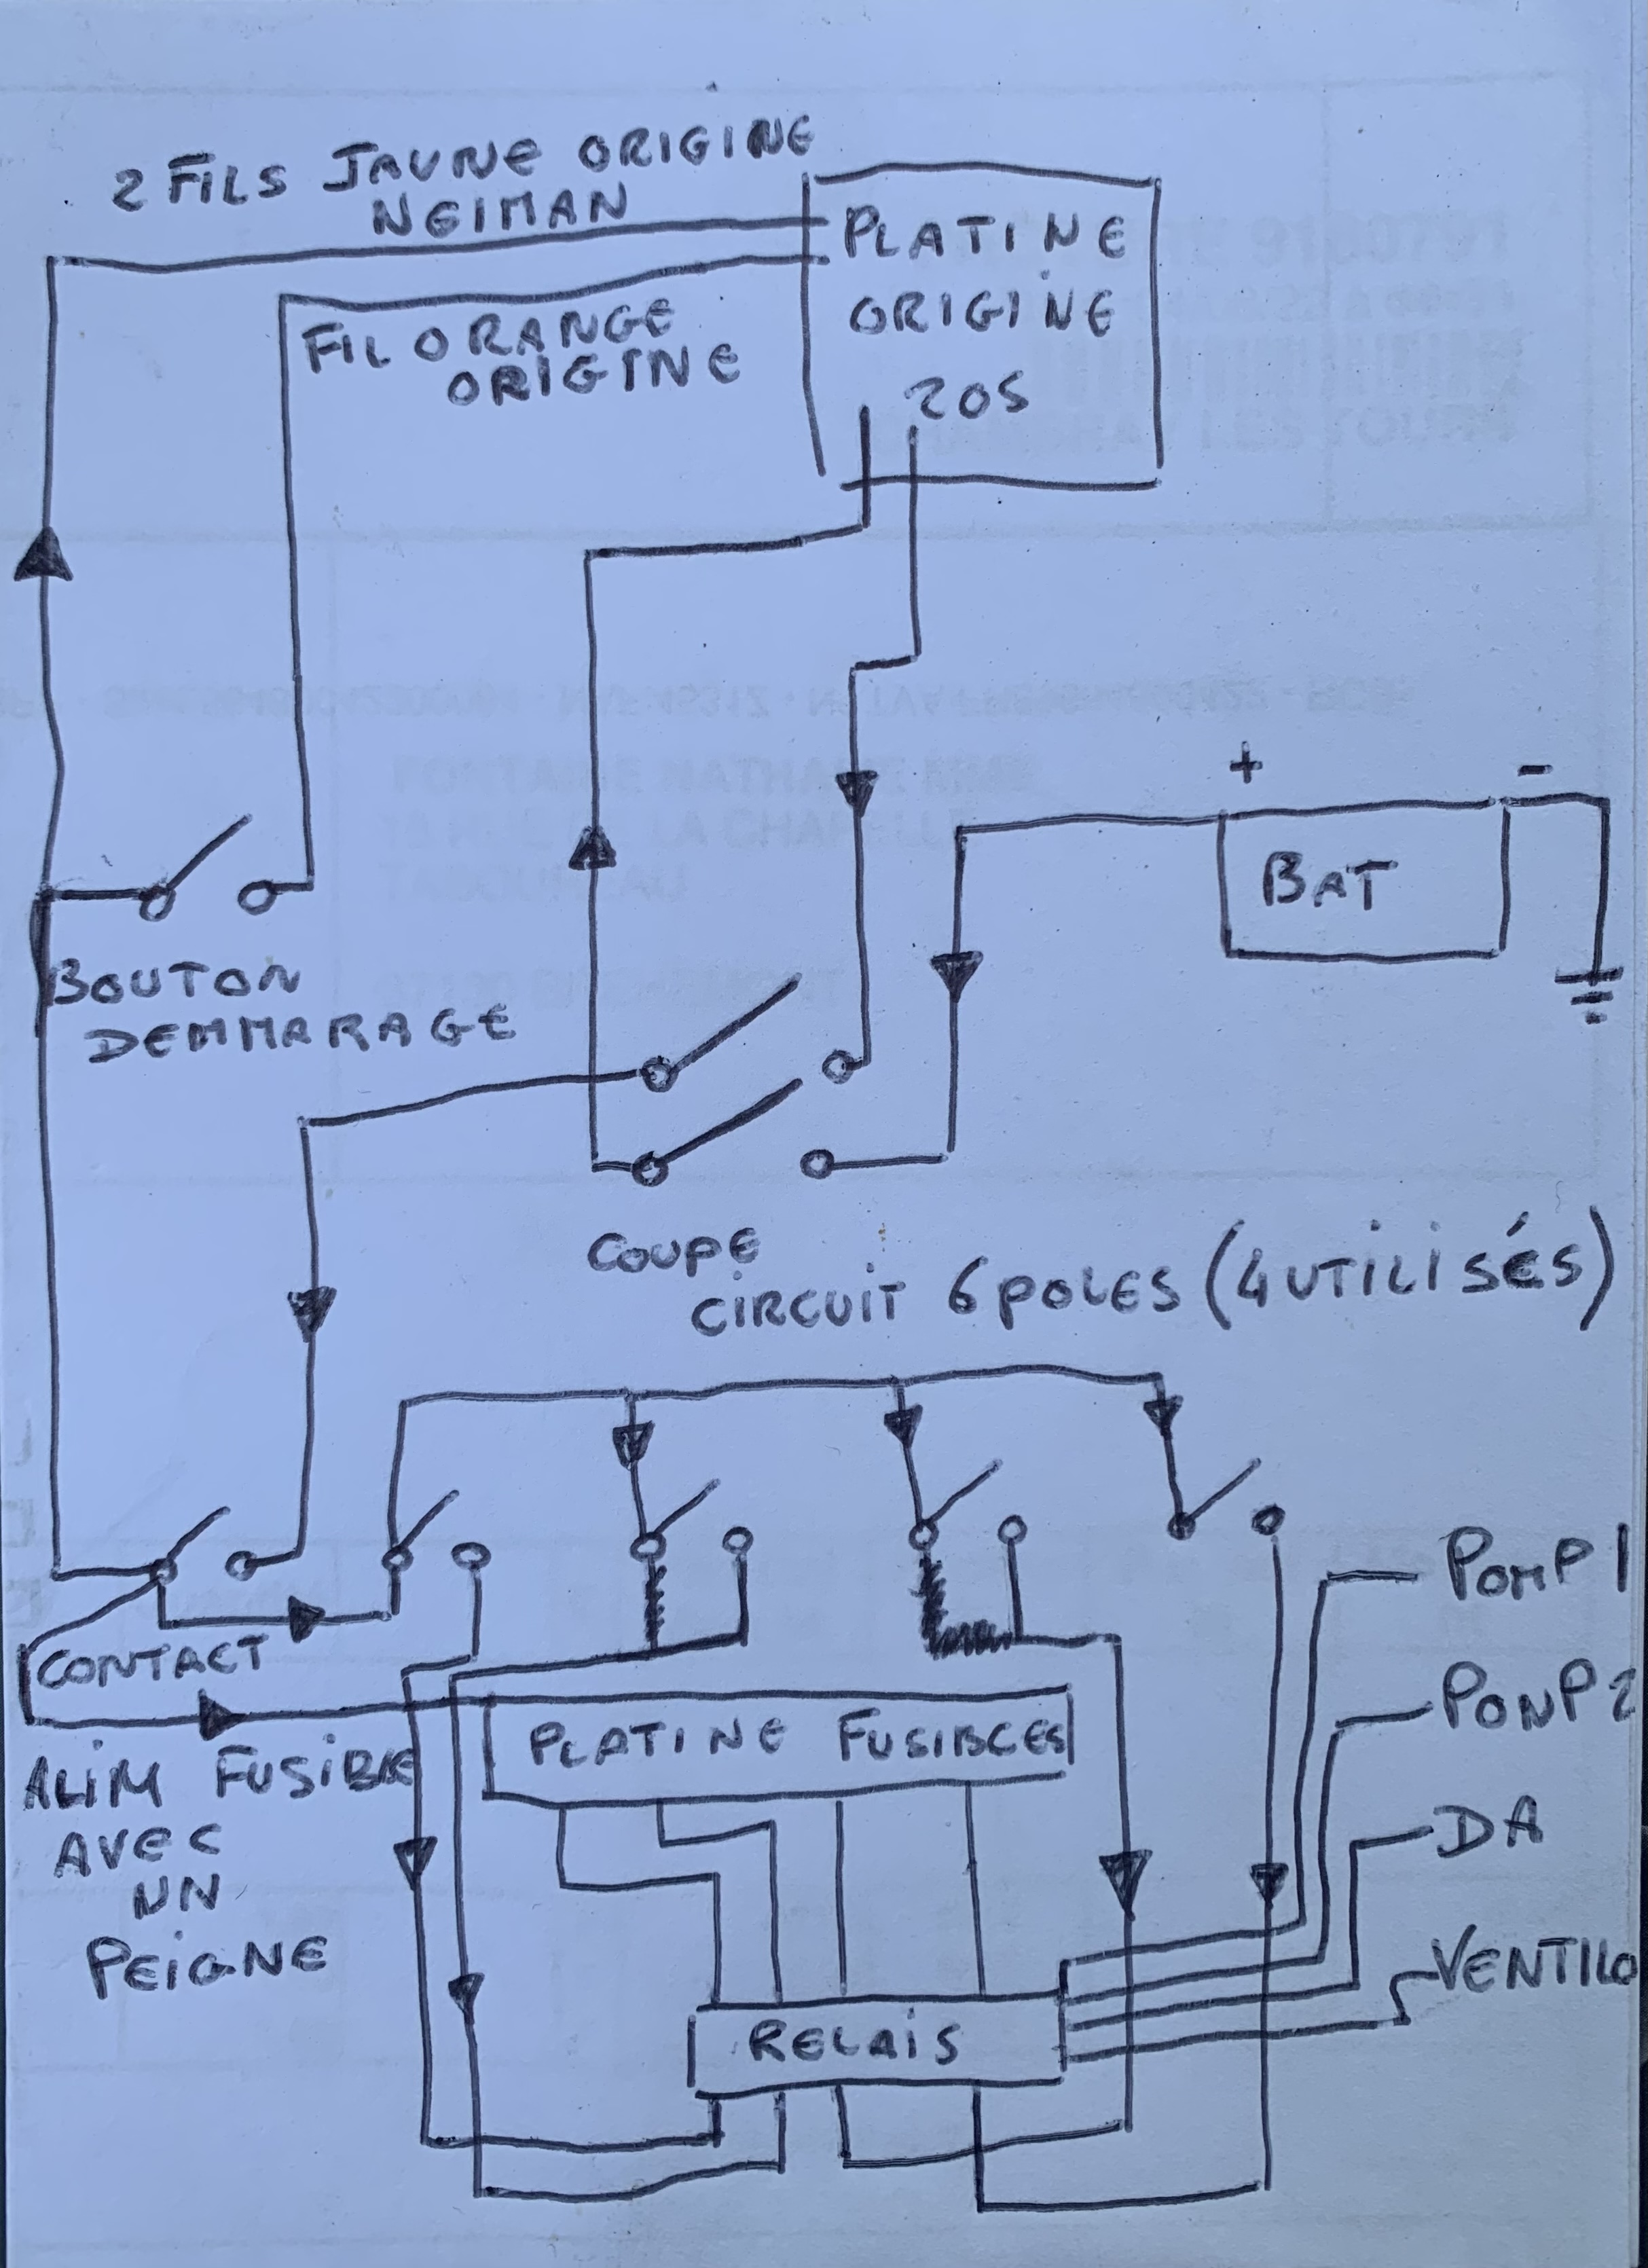 2 FILS JAUNE ORIGINE
NEIMAN
PLATINE
ORIGINE
205
FIL ORANGE
ORIGINE
+
-
BAT
BOUTON
DEMMARAGE
COUPE
CIRCUIT 6 POLES (4 UTILISÉS)
POMP 1
CONTACT
PONP 2
PLATINE FUSIBLES
ALIM FUSIBLE
AVEC
UN
PEIGNE
DA
VENTILO
RELAIS